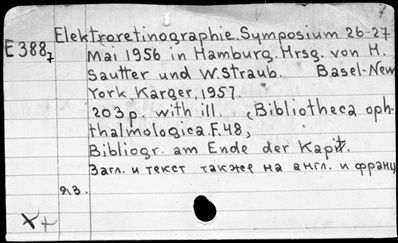 Elektroretinographie. Symposium 26-27
E 3887 Mai 1956 in Hamburg. Hrsg. von H.
Sautter und W. Straub. Basel-New
York, Karger, 1957.
203 p. with ill. (Bibliotheca oph-
thalmologica. F. 48)
Bibliogr. am Ende der Kapit.
Загл. и текст также на англ. и франц
яз.